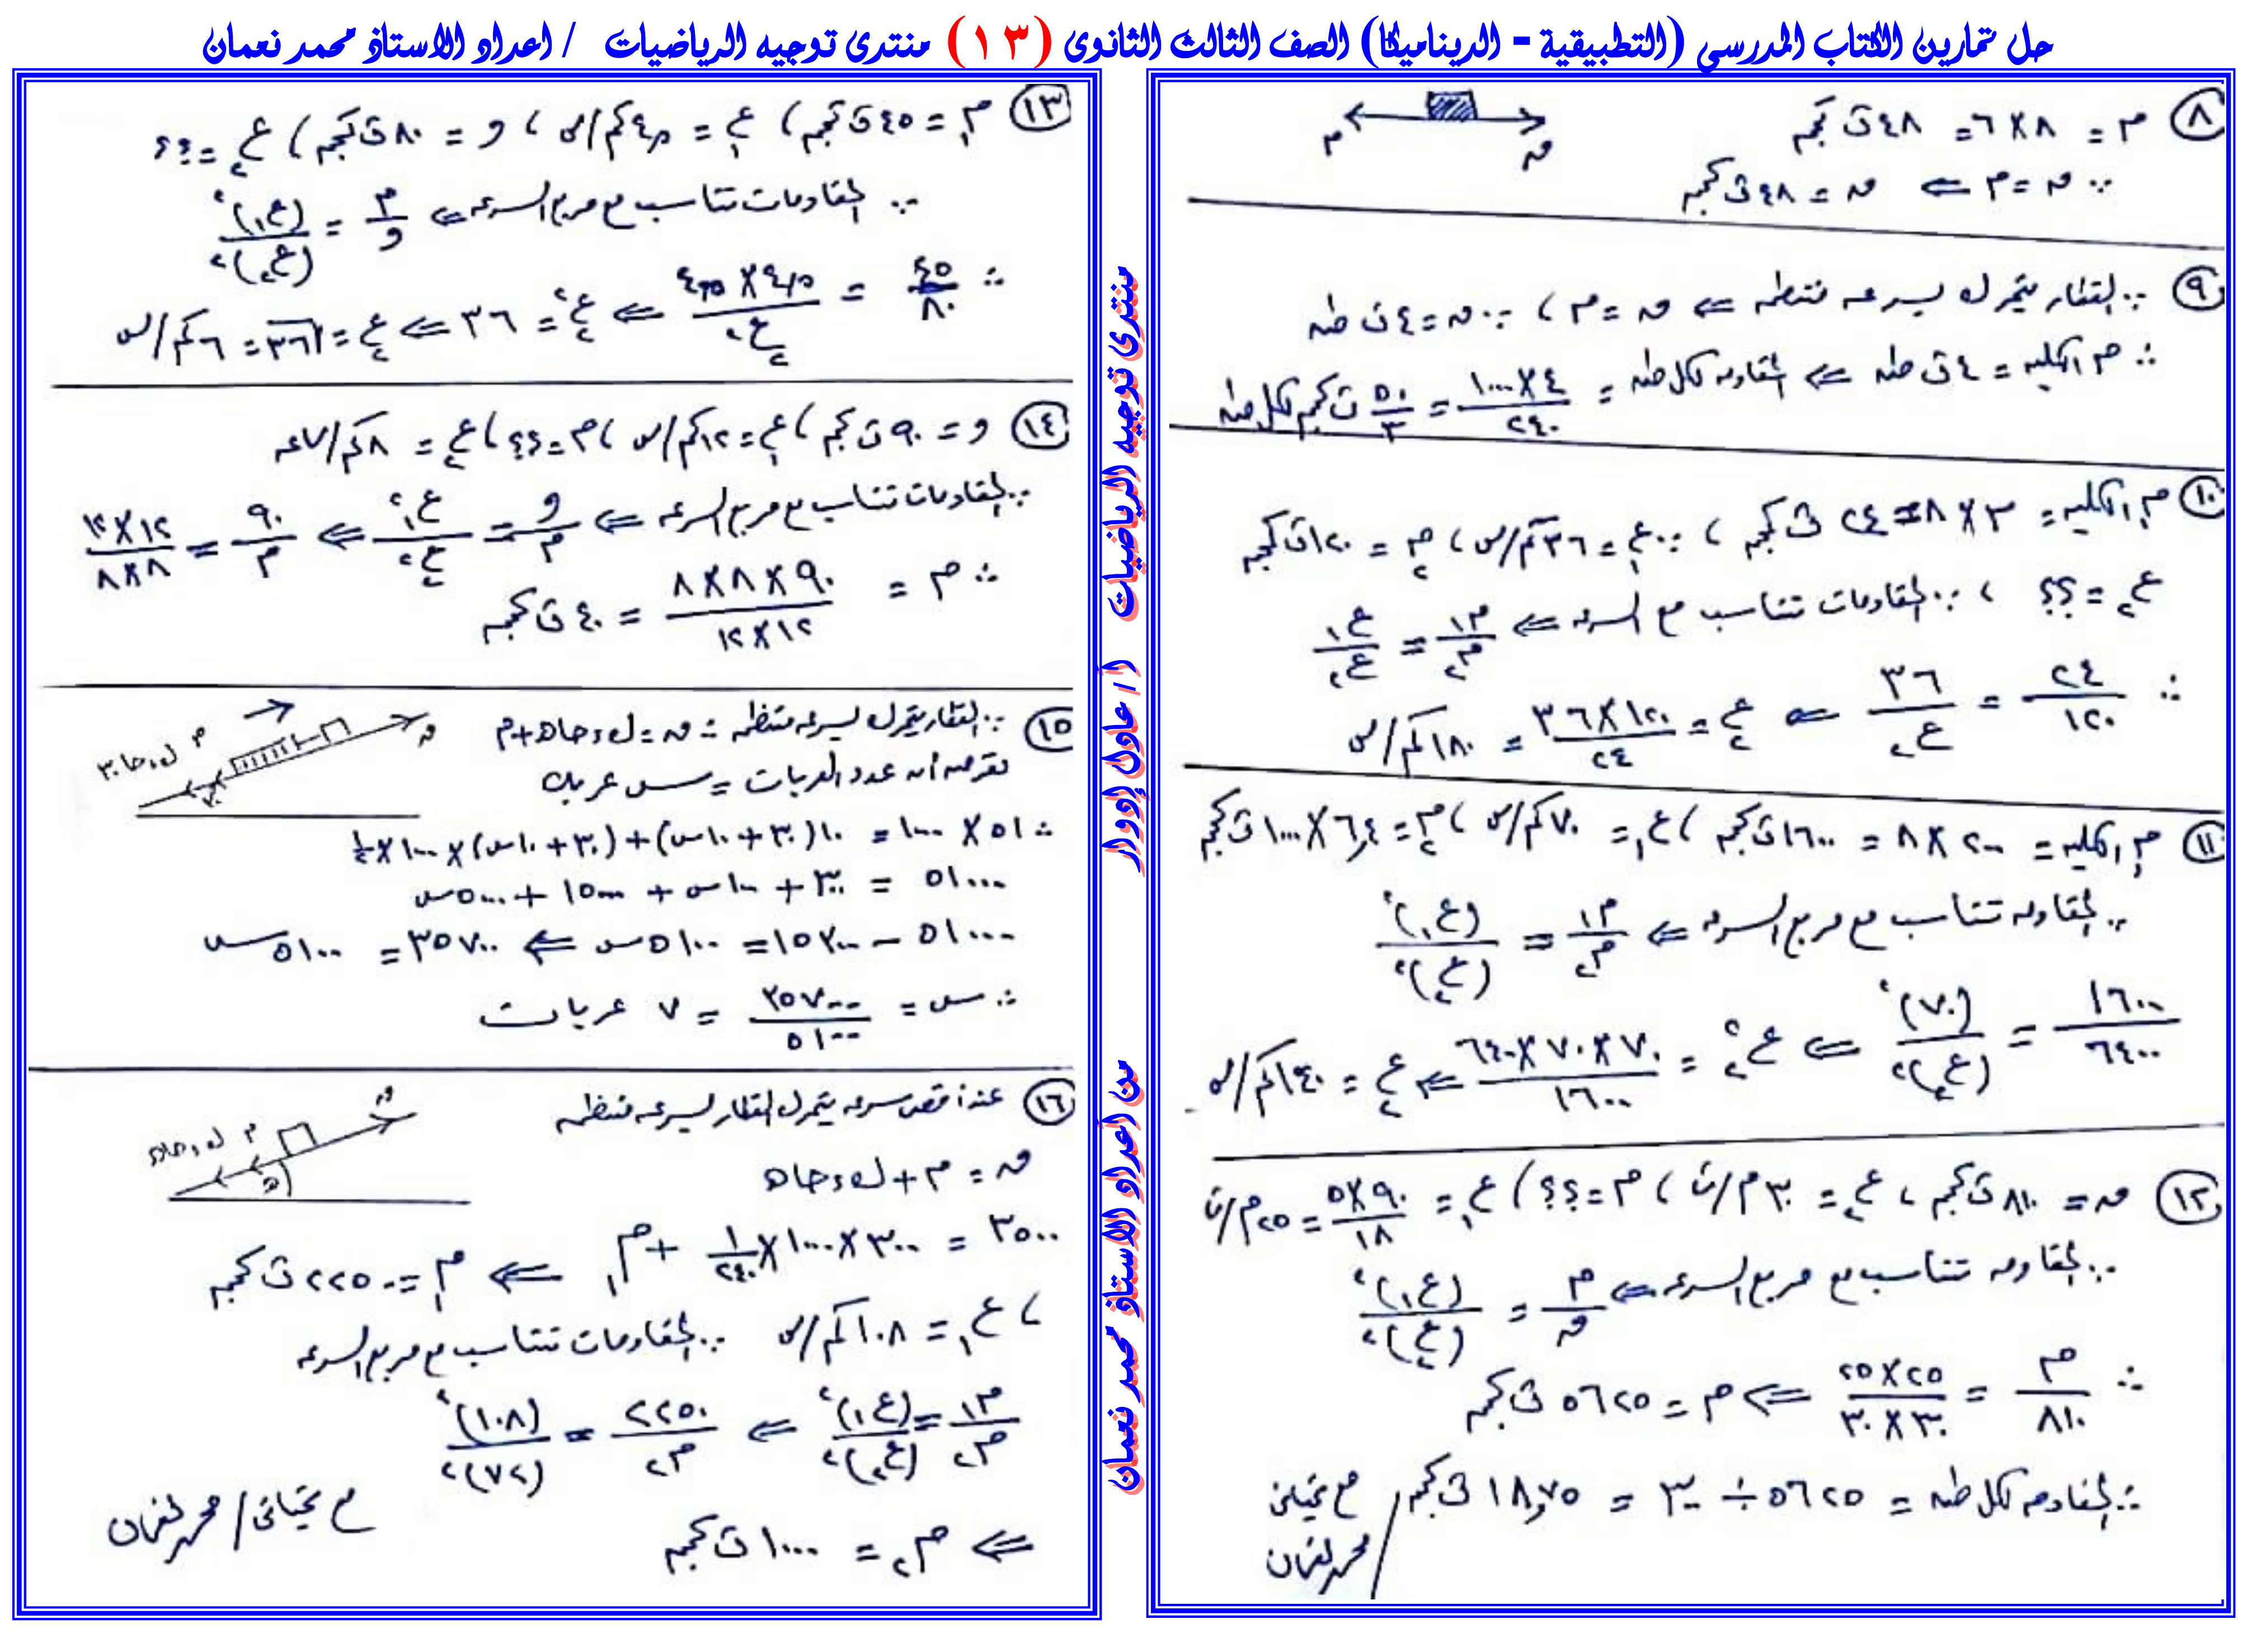 حل تمارين الكتاب المدرسي (التطبيقية - الديناميكا) الصف الثالث الثانوى (١٣) منتدى توجيه الرياضيات / اعداد الاستاذ محمد نعمان
⑧ م = ٨ × ٦ = ٤٨ ث كجم
∵ ن = م ⇐ ن = ٤٨ ث كجم
م ن
⑨ ∵ القطار يتحرك بسرعة منتظمة ⇐ ن = م ، ∵ ن = ٤ ث طن
∴ م الكلية = ٤ ث طن ⇐ المقاومة لكل طن = ٤ × ١٠٠٠ / ٢٤٠ = ٥٠ / ٣ ث كجم لكل طن
⑩ م١ الكلية = ٣ × ٨ = ٢٤ ث كجم ، ∵ ع١ = ٣٦ كم/س ، م٢ = ١٢٠ ث كجم
ع٢ = ؟؟ ، ∵ المقاومات تتناسب مع السرعة ⇐ م١ / م٢ = ع١ / ع٢
∴ ٢٤ / ١٢٠ = ٣٦ / ع٢ ⇐ ع٢ = ١٢٠ × ٣٦ / ٢٤ = ١٨٠ كم/س
⑪ م١ الكلية = ٢٠٠ × ٨ = ١٦٠٠ ث كجم ، ع١ = ٧٠ كم/س ، م٢ = ٦٫٤ × ١٠٠٠ ث كجم
∵ المقاومة تتناسب مع مربع السرعة ⇐ م١ / م٢ = (ع١)² / (ع٢)²
١٦٠٠ / ٦٤٠٠ = (٧٠)² / (ع٢)² ⇐ ع٢² = ٧٠ × ٧٠ × ٦٤٠٠ / ١٦٠٠ ⇐ ع٢ = ١٤٠ كم/س
⑫ ن = ٨١٠٠ ث كجم ، ع٢ = ٣٠ م/ث ، م = ؟؟ ، ع١ = ٩٠ × ٥ / ١٨ = ٢٥ م/ث
∵ المقاومة تتناسب مع مربع السرعة ⇐ م / ن = (ع١)² / (ع٢)²
∴ م / ٨١٠٠ = ٢٥ × ٢٥ / ٣٠ × ٣٠ ⇐ م = ٥٦٢٥ ث كجم
∴ المقاومة لكل طن = ٥٦٢٥ ÷ ٣٠٠ = ١٨٫٧٥ ث كجم
مع تحياتى / محمد نعمان
منتدى توجيه الرياضيات أ / عادل إدوار
من اعداد الاستاذ محمد نعمان
⑬ م = ٤٥ ث كجم ، ع١ = ٤٫٥ كم/س ، و = ٨٠ ث كجم ، ع٢ = ؟؟
∵ المقاومات تتناسب مع مربع السرعة ⇐ م / و = (ع١)² / (ع٢)²
∴ ٤٥ / ٨٠ = ٤٫٥ × ٤٫٥ / ع٢² ⇐ ع٢² = ٣٦ ⇐ ع٢ = √٣٦ = ٦ كم/س
⑭ و = ٩٠ ث كجم ، ع١ = ١٢ كم/س ، م = ؟؟ ، ع٢ = ٨ كم/ساعه
∵ المقاومات تتناسب مع مربع السرعة ⇐ و / م = ع١² / ع٢² ⇐ ٩٠ / م = ١٢ × ١٢ / ٨ × ٨
∴ م = ٩٠ × ٨ × ٨ / ١٢ × ١٢ = ٤٠ ث كجم
⑮ ∵ القطار يتحرك بسرعة منتظمة ∴ ن = ك ء جا ه + م
نفرض أن عدد العربات = س عربة
∴ ٥١ × ١٠٠٠ = ١٠ (٣٠ + ١٠س) + (٣٠ + ١٠س) × ١٠٠٠ × ½
٥١٠٠٠ = ٣٠٠ + ١٠٠س + ١٥٠٠٠ + ٥٠٠٠س
٥١٠٠٠ - ١٥٣٠٠ = ٥١٠٠س ⇐ ٣٥٧٠٠ = ٥١٠٠س
∴ س = ٣٥٧٠٠ / ٥١٠٠ = ٧ عربات
ن م ك ء جا ٣٠ ٣٠
⑯ عند أقصى سرعة يتحرك القطار بسرعة منتظمة
ن = م + ك ء جا ه
٣٥٠٠ = ٣٠٠ × ١٠٠٠ × ١ / ٢٤٠ + م١ ⇐ م١ = ٢٢٥٠ ث كجم
، ع١ = ١٠٨ كم/س ∵ المقاومات تتناسب مع مربع السرعة
م١ / م٢ = (ع١)² / (ع٢)² ⇐ ٢٢٥٠ / م٢ = (١٠٨)² / (٧٢)²
⇐ م٢ = ١٠٠٠ ث كجم
ن م ك ء جا ه ه
مع تحياتى / محمد نعمان